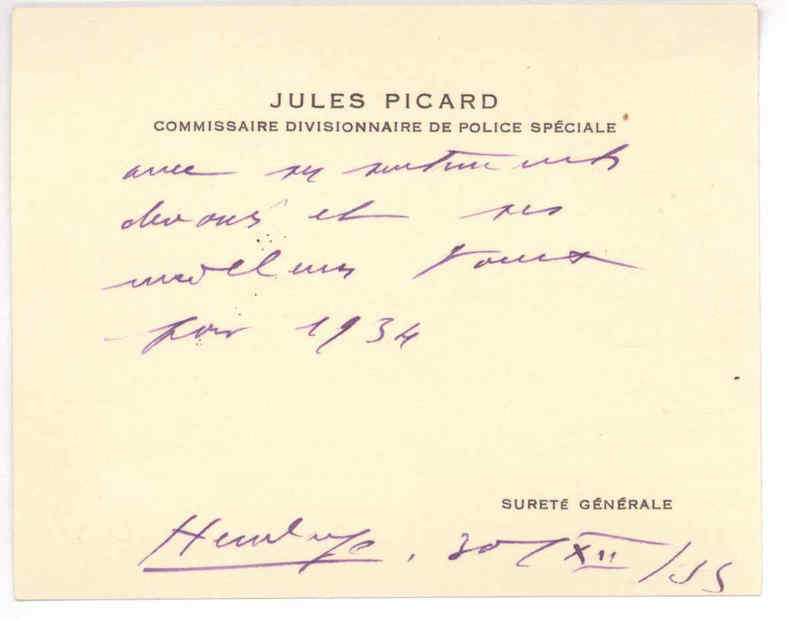 JULES PICARD
COMMISSAIRE DIVISIONNAIRE DE POLICE SPÉCIALE
avec ses sentiments
dévoués et ses
meilleurs voeux
pour 1934
SURETÉ GÉNÉRALE
30/XII/33